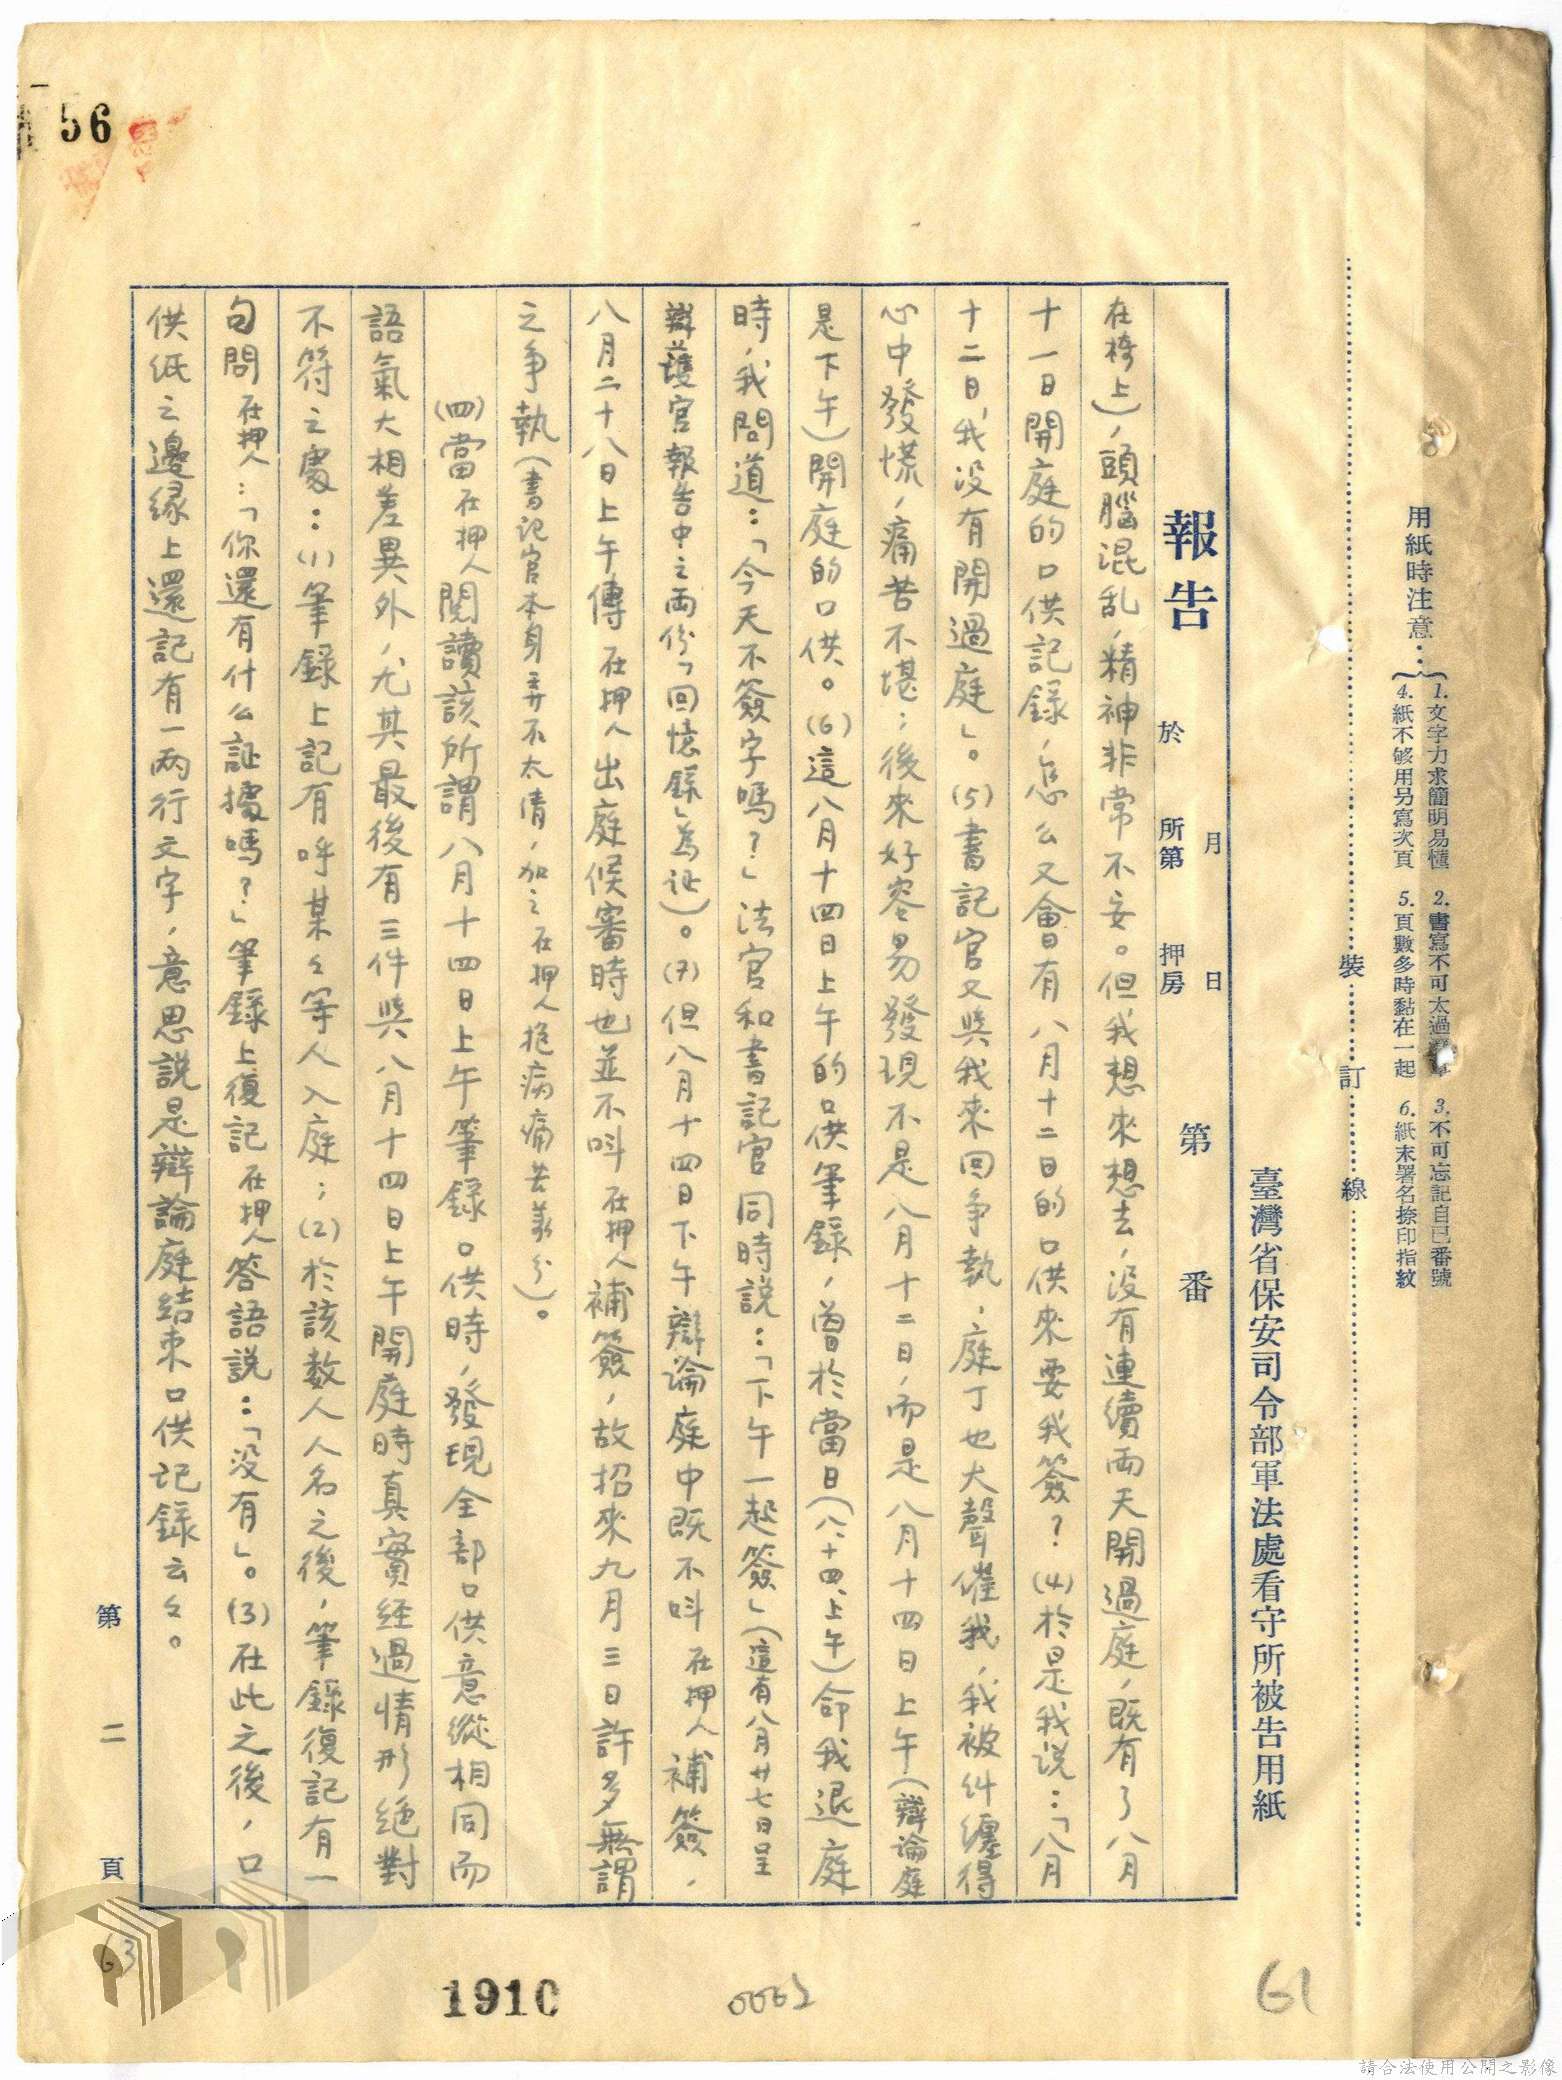 用紙時注意：
1.文字力求簡明易懂 2.書寫不可太過 3.不可忘記自己番號
4.紙不够用另寫次頁 5.頁數多時黏在一起 6.紙末署名捺印指紋
裝 訂 線
臺灣省保安司令部軍法處看守所被告用紙
報告
月 日
於 所第 押房
第 番
在椅上），頭腦混乱，精神非常不妥。但我想來想去，沒有連續兩天開過庭，既有了八月
十一日開庭的口供記録，怎么又會有八月十二日的口供來要我簽？(4)於是我说：「八月
十二日，我没有開過庭」。(5)書記官又與我來回争執，庭丁也大聲催我，我被纠纏得
心中發慌，痛苦不堪；後來好容易發現不是八月十二日，而是八月十四日上午（辯論庭
是下午）開庭的口供。(6)這八月十四日上午的口供筆錄，曾於當日（八、十四、上午）命我退庭
時，我問道：「今天不簽字嗎？」法官和書記官同時說：「下午一起簽」（這有八月廿七日呈
辯護官報告中之兩份「回憶錄」為证）。(7)但八月十四日下午辯論庭中既不呌在押人補簽，
八月二十八日上午傳在押人出庭候審時也並不呌在押人補簽，故招來九月三日許多無謂
之争執（書记官本身弄不太清，加之在押人抱病痛苦萬分）。
(四)當在押人閱讀該所謂八月十四日上午筆錄口供時，發現全部口供意縱相同而
語氣大相差異外，尤其最後有三件與八月十四日上午開庭時真實经過情形絕對
不符之處：(1)筆錄上記有呼某々等人入庭；(2)於該数人人名之後，筆錄復記有一
句問在押人：「你還有什么証據嗎？」筆錄上復記在押人答語説：「没有」。(3)在此之後，口
供纸之邊缘上還記有一两行文字，意思説是辯論庭結束口供记録云々。
第 二 頁
56
63
1910
0062
61
請合法使用公開之影像